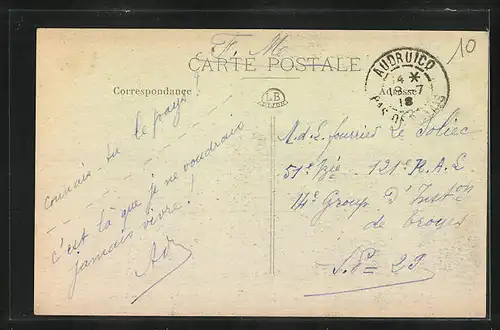 F. M
CARTE POSTALE
10
AUDRUICQ
4 *
13-7
18
PAS DE CALAIS
Correspondance
LB
Adresse
connais-tu le pays?
c'est là que je ne voudrais
jamais vivre!
M.d.L. fourrier Le
51e Bie 121e R.A.L
14e Group d'Inston
de Troyes
S.P = 29